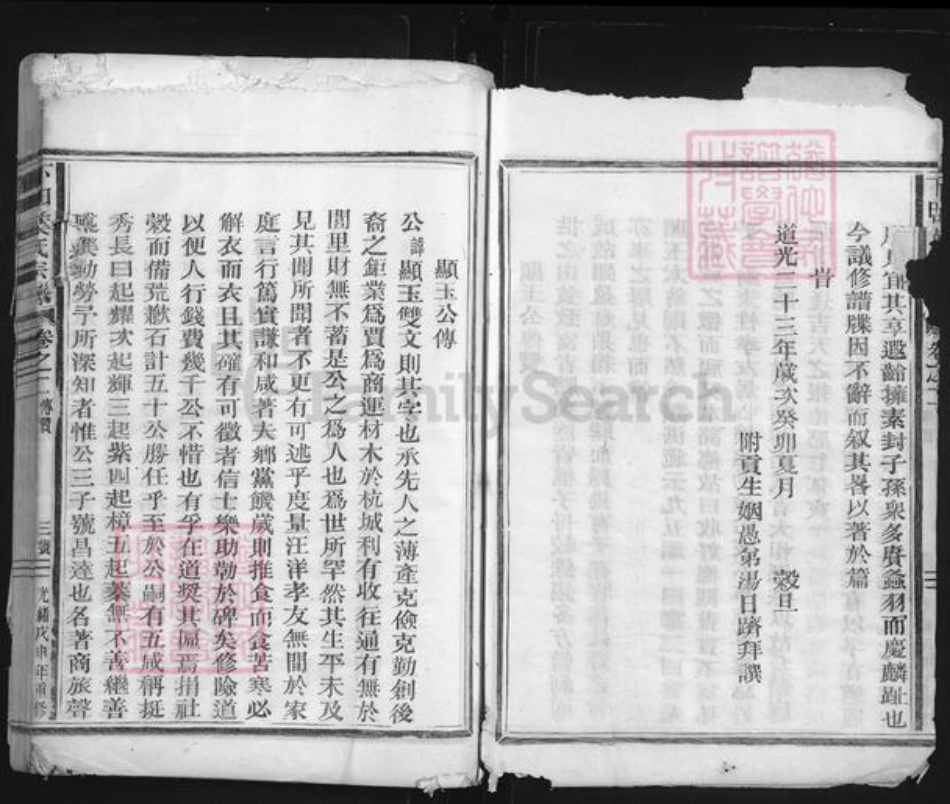 宜其享遐齡擁素封子孫衆多賡螽羽而慶麟趾也
今議修譜牒因不辭而叙其畧以著於篇
旹
道光二十三年歲次癸卯夏月 穀旦
附貢生姻愚弟湯日躋拜譔
顯玉公傳
公諱顯玉雙文則其字也承先人之薄產克儉克勤創後
裔之鉅業爲賈爲商運材木於杭城利有收往通有無於
閭里財無不蓄是公之爲人也爲世所罕然其生平未及
見其聞所聞者不更有可述乎度量汪洋孝友無間於家
庭言行篤實謙和咸著夫鄉黨饑歲則推食而食苦寒必
解衣而衣且其確有可徵者信士樂助勒於碑矣修險道
以便人行錢費幾千公不惜也有孚在道奬其匾焉捐社
穀而備荒歉石計五十公勝任乎至於公嗣有五咸稱挺
秀長曰起耀次起輝三起紫四起樟五起蓁無不善繼善
勤勞予所深知者惟公三子號昌達也名著商旅聲
氏宗 卷之二 傳贊 三號 光緒戊申年重修
卷之二
FamilySearch